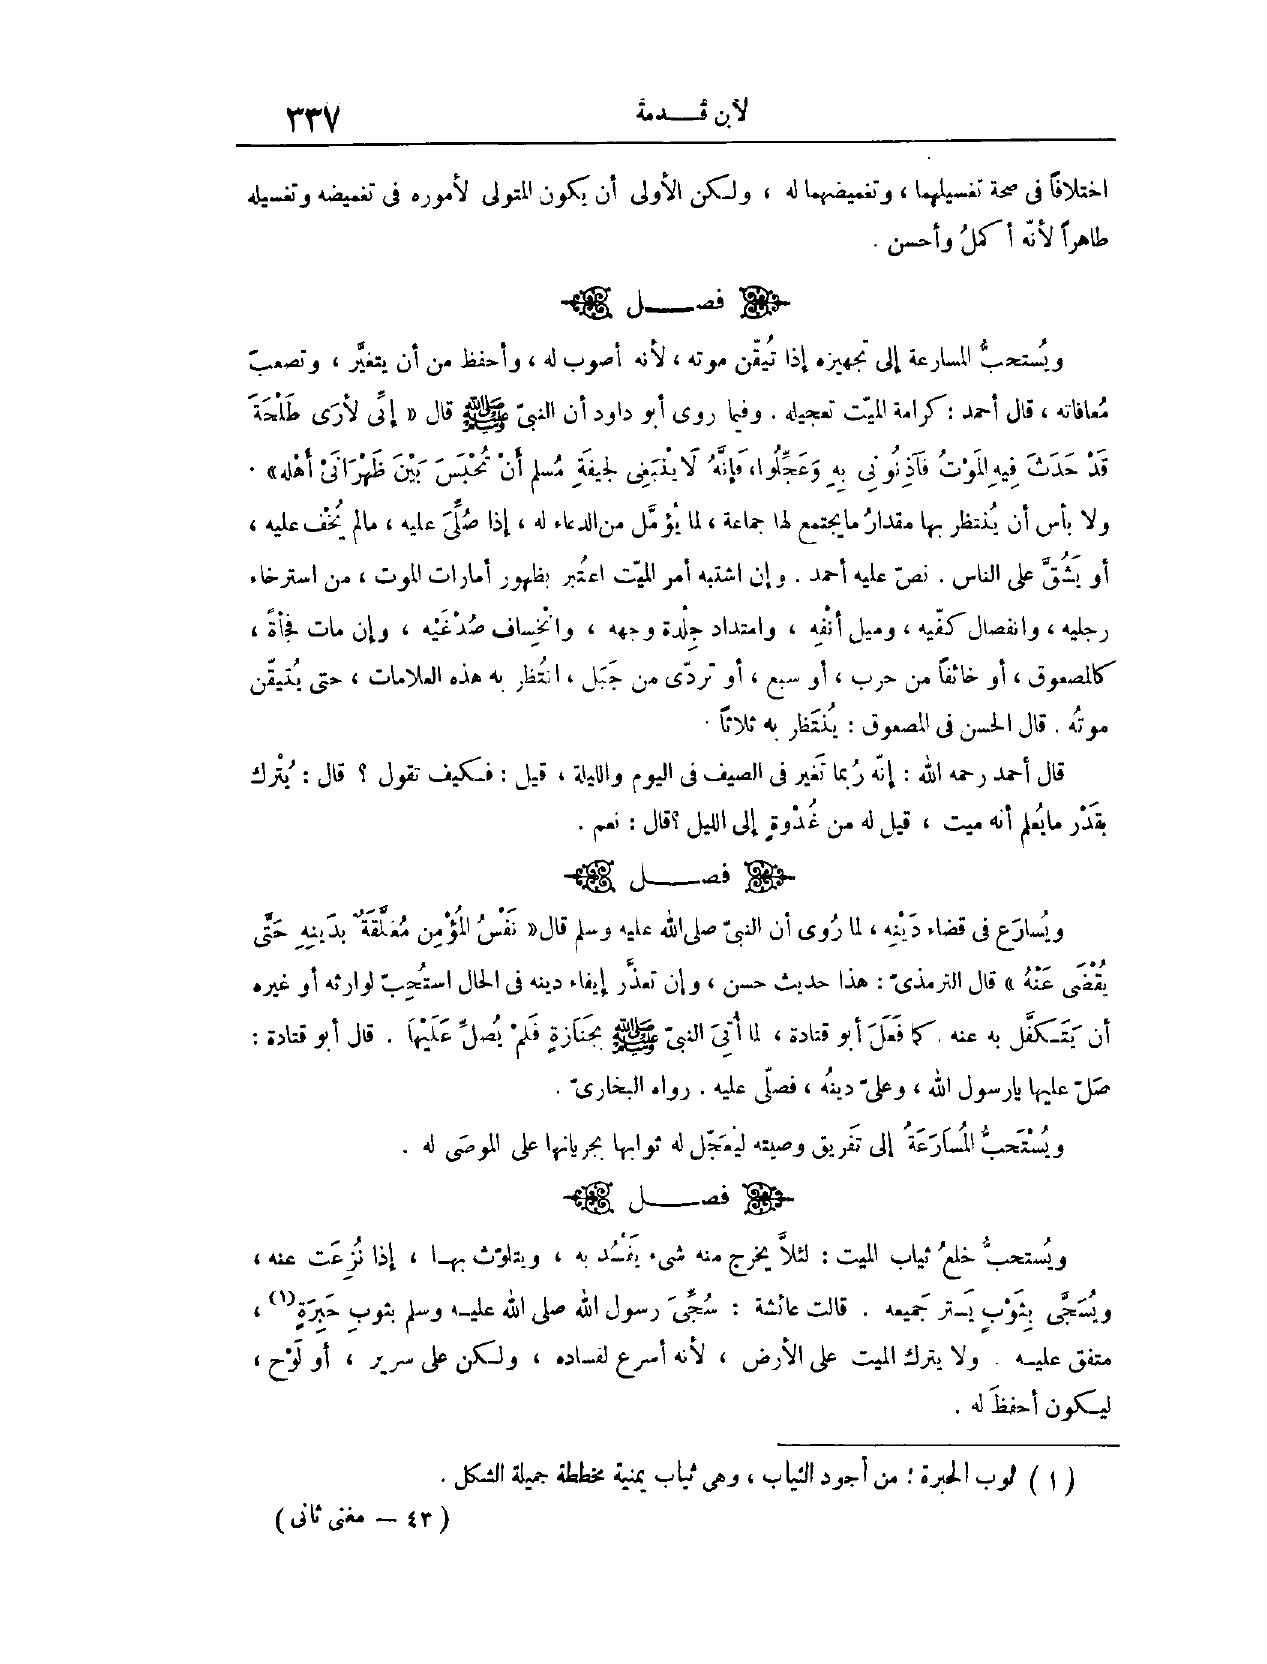 لابن قدمة ٣٣٧
اختلافاً فى صحة تغسيلهما ، وتغميضهما له ، ولكن الأولى أن يكون المتولى لأموره فى تغميضه وتغسيله
طاهراً لأنّه أكملُ وأحسن .
فصل
ويُستحبُّ المسارعة إلى تجهيزه إذا تُيقّن موته ، لأنه أصوب له ، وأحفظ من أن يتغيَّر ، وتصعبَ
مُعافاته ، قال أحمد : كرامة الميّت تعجيله . وفيما روى أبو داود أن النبىّ ﷺ قال « إنِّى لأرَى طَلْحَةَ
قَدْ حَدَثَ فِيهِ الموْتُ فَآذِنُونِي بِهِ وَعَجِّلُوا، فَإنَّهُ لَا يَنْبَغِى لجِيفَةِ مُسلم أَنْ تُحْبَسَ بَيْنَ ظَهْرَانَىْ أَهْله» .
ولا بأس أن يُنتظر بها مقدارُ مايجتمع لها جماعة ، لما يُؤمَّل من الدعاء له ، إذا صُلِّىَ عليه ، مالم يُخَف عليه ،
أو يَشُقَّ على الناس . نصّ عليه أحمد . وإن اشتبه أمر الميّت اعتُبر بظهور أمارات الموت ، من استرخاء
رجليه ، وانفصال كفّيه ، وميل أنْفِه ، وامتداد جِلْدة وجهه ، وانْخِساف صُدْغَيْه ، وإن مات فجأةً ،
كالمصعوق ، أو خائفاً من حرب ، أو سبع ، أو تردّى من جَبَل ، انتُظر به هذه العلامات ، حتى يُتيقّن
موتُه . قال الحسن فى المصعوق : يُنتَظر به ثلاثاً .
قال أحمد رحمه الله : إنّه رُبما تَغير فى الصيف فى اليوم والليلة ، قيل : فكيف تقول ؟ قال : يُتْرك
بقَدْر مايُعلم أنه ميت ، قيل له من غُدْوةٍ إلى الليل ؟ قال : نعم .
فصل
ويُسارَع فى قضاء دَيْنِه ، لما رُوى أن النبىّ صلى الله عليه وسلم قال « نَفْسُ المُؤْمِن مُعَلَّقَةٌ بدَينِهِ حَتَّى
يُقْضَى عَنْهُ » قال الترمذىّ : هذا حديث حسن ، وإن تعذَّر إيفاء دينه فى الحال استُحِبّ لوارثه أو غيره
أن يَتَكفَّل به عنه . كما فَعَلَ أبو قتادة ، لما أُتِىَ النبىّ ﷺ بجَنَازةٍ فَلَمْ يُصلِّ عَلَيْهَا . قال أبو قتادة :
صَلّ عليها يارسول الله ، وعلىّ دينُه ، فصلّى عليه . رواه البخارىّ .
ويُسْتَحبُّ المُسَارَعَةُ إلى تَفريق وصيته ليُعَجّل له ثوابها بجريانها على الموصَى له .
فصل
ويُستحبُّ خلعُ ثياب الميت : لئلاَّ يخرج منه شىء يَفْسُد به ، ويتلوّث بها ، إذا نُزِعَت عنه ،
ويُسَجَّى بِثَوْبٍ يَستر جَميعه . قالت عائشة : سُجِّىَ رسول الله صلى الله عليه وسلم بثوبِ حَبِرَةٍ (١) ،
متفق عليه . ولا يترك الميت على الأرض ، لأنه أسرع لفساده ، ولكن على سرير ، أو لَوْح ،
ليكون أحفظَ له .
(١) ثوب الحبرة : من أجود الثياب ، وهى ثياب يمنية مخططة جميلة الشكل .
(٤٣ — مغنى ثانى)